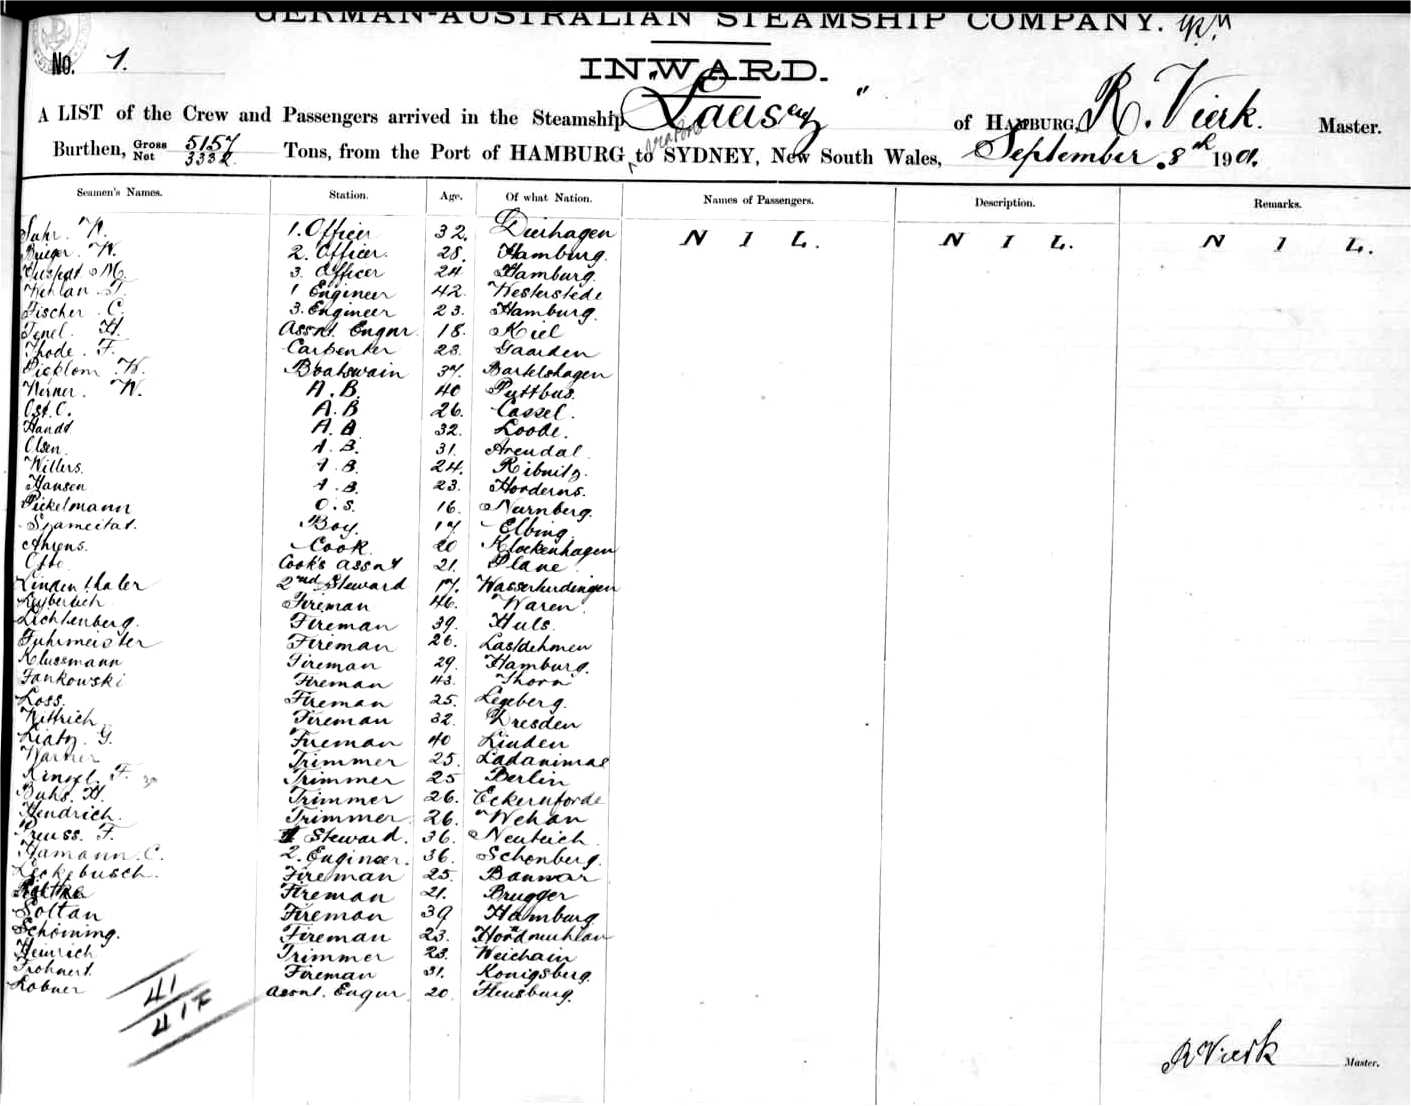 GERMAN-AUSTRALIAN STEAMSHIP COMPANY.
No. 1.
INWARD.
A LIST of the Crew and Passengers arrived in the Steamship " Laeisz " of HAMBURG, R. Vierk. Master.
Burthen, Gross 5157 Net 3332 Tons, from the Port of HAMBURG to SYDNEY, New South Wales, September 8th 1901.
Seamen's Names. Station. Age. Of what Nation. Names of Passengers. Description. Remarks.
Suhr. W. 1. Officer 32. Dierhagen NIL. NIL. NIL.
W. 2. Officer. 28. Hamburg.
M. 3. Officer 24 Hamburg.
1 Engineer 42. Westerstede
Fischer C. 3. Engineer 23. Hamburg.
H. Assnt. Engnr. 18. Kiel
Thode. F. Carpenter 23. Gaarden
W. Boatswain 37. Bartelshagen
Werner. W. A.B. 40 Puttbus.
Ost. C. A.B 26. Cassel.
Handt A.B 32. Loode.
Olsen. A.B. 31. Arendal.
Willers. A.B. 24. Ribnitz.
Hansen A.B. 23.
Pickelmann O.S. 16. Nurnberg.
Boy. 17. Elbing
Ahrens. Cook. 20 Klockenhagen
Otto Cook's Assnt 21. Plane
Lindenthaler 2nd Steward 17.
Fireman 46. Waren.
Lichtenberg. Fireman 39. Huls.
Fuhrmeister Fireman 26. Lasdehmen
Klussmann Fireman 29. Hamburg.
Jankowski Fireman 43. Thorn
Loss. Fireman 25.
Wittrich Fireman 32. Dresden
G. Fireman 40 Linden
Warner Trimmer 25.
F. Trimmer 25 Berlin
Buhs. H. Trimmer 26. Eckernforde
Hendrich. Trimmer. 26. Wehan
Preuss. F. 1 Steward. 36. Neuteich
Hamann. C. 2. Engineer. 36. Schonberg.
Leckebusch. Fireman 25.
Fireman 21. Brugger
Soltau Fireman 39 Hamburg
Schoming. Fireman 23.
Heinrich Trimmer 23. Weichain
Trohnert. Fireman 31. Konigsberg.
Lobner Assnt. Engnr. 20. Flensburg.
41
41
R Vierk Master.